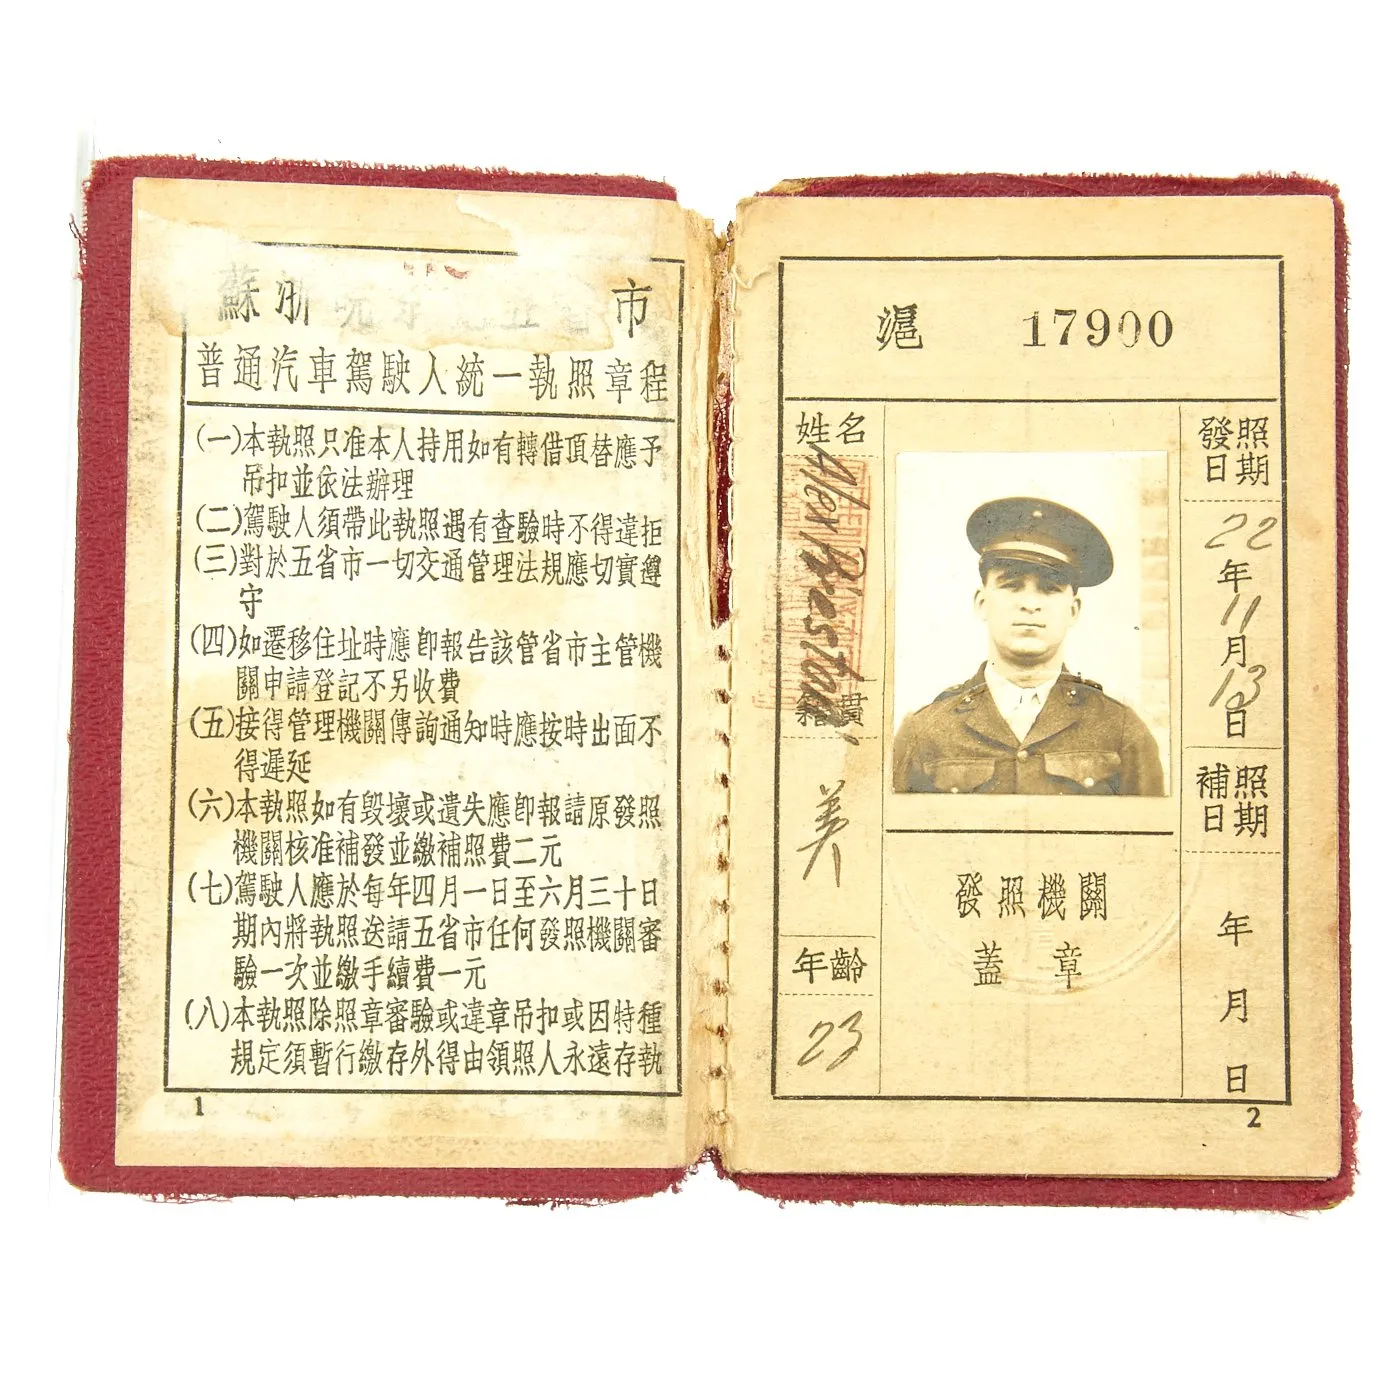 蘇浙皖京滬五省市
普通汽車駕駛人統一執照章程
(一)本執照只准本人持用如有轉借頂替應予
吊扣並依法辦理
(二)駕駛人須帶此執照遇有查驗時不得違拒
(三)對於五省市一切交通管理法規應切實遵
守
(四)如遷移住址時應卽報告該管省市主管機
關申請登記不另收費
(五)接得管理機關傳詢通知時應按時出面不
得遲延
(六)本執照如有毀壞或遺失應卽報請原發照
機關核准補發並繳補照費二元
(七)駕駛人應於每年四月一日至六月三十日
期內將執照送請五省市任何發照機關審
驗一次並繳手續費一元
(八)本執照除照章審驗或違章吊扣或因特種
規定須暫行繳存外得由領照人永遠存執
1
滬 17900
姓名
Alex Preston
籍貫
美
年齡
23
發照機關
蓋章
發照
日期
22
年
11
月
13
日
補照
日期
年
月
日
2